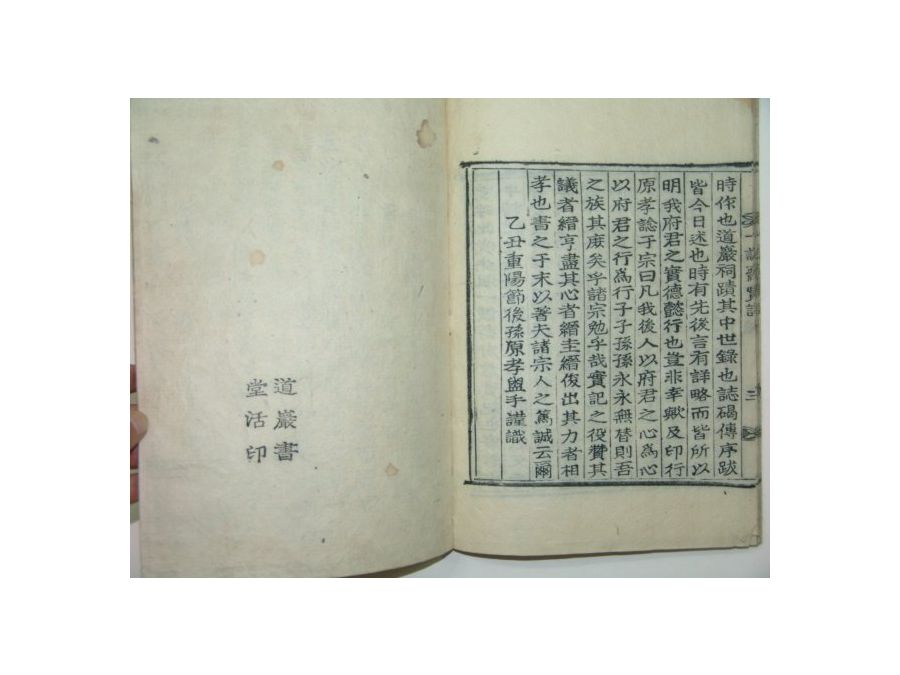 時作也道巖祠蹟其中世錄也誌碣傳序跋
皆今日述也時有先後言有詳略而皆所以
明我府君之實德懿行也豈非幸歟及印行
原孝諗于宗曰凡我後人以府君之心為心
以府君之行為行子子孫孫永永無替則吾
之族其庶矣乎諸宗勉乎哉實記之役贊其
議者縉亨盡其心者縉圭縉俊出其力者相
孝也書之于末以著夫諸宗人之篤誠云爾
乙丑重陽節後孫原孝盥手謹識
三
道巖書
堂活印